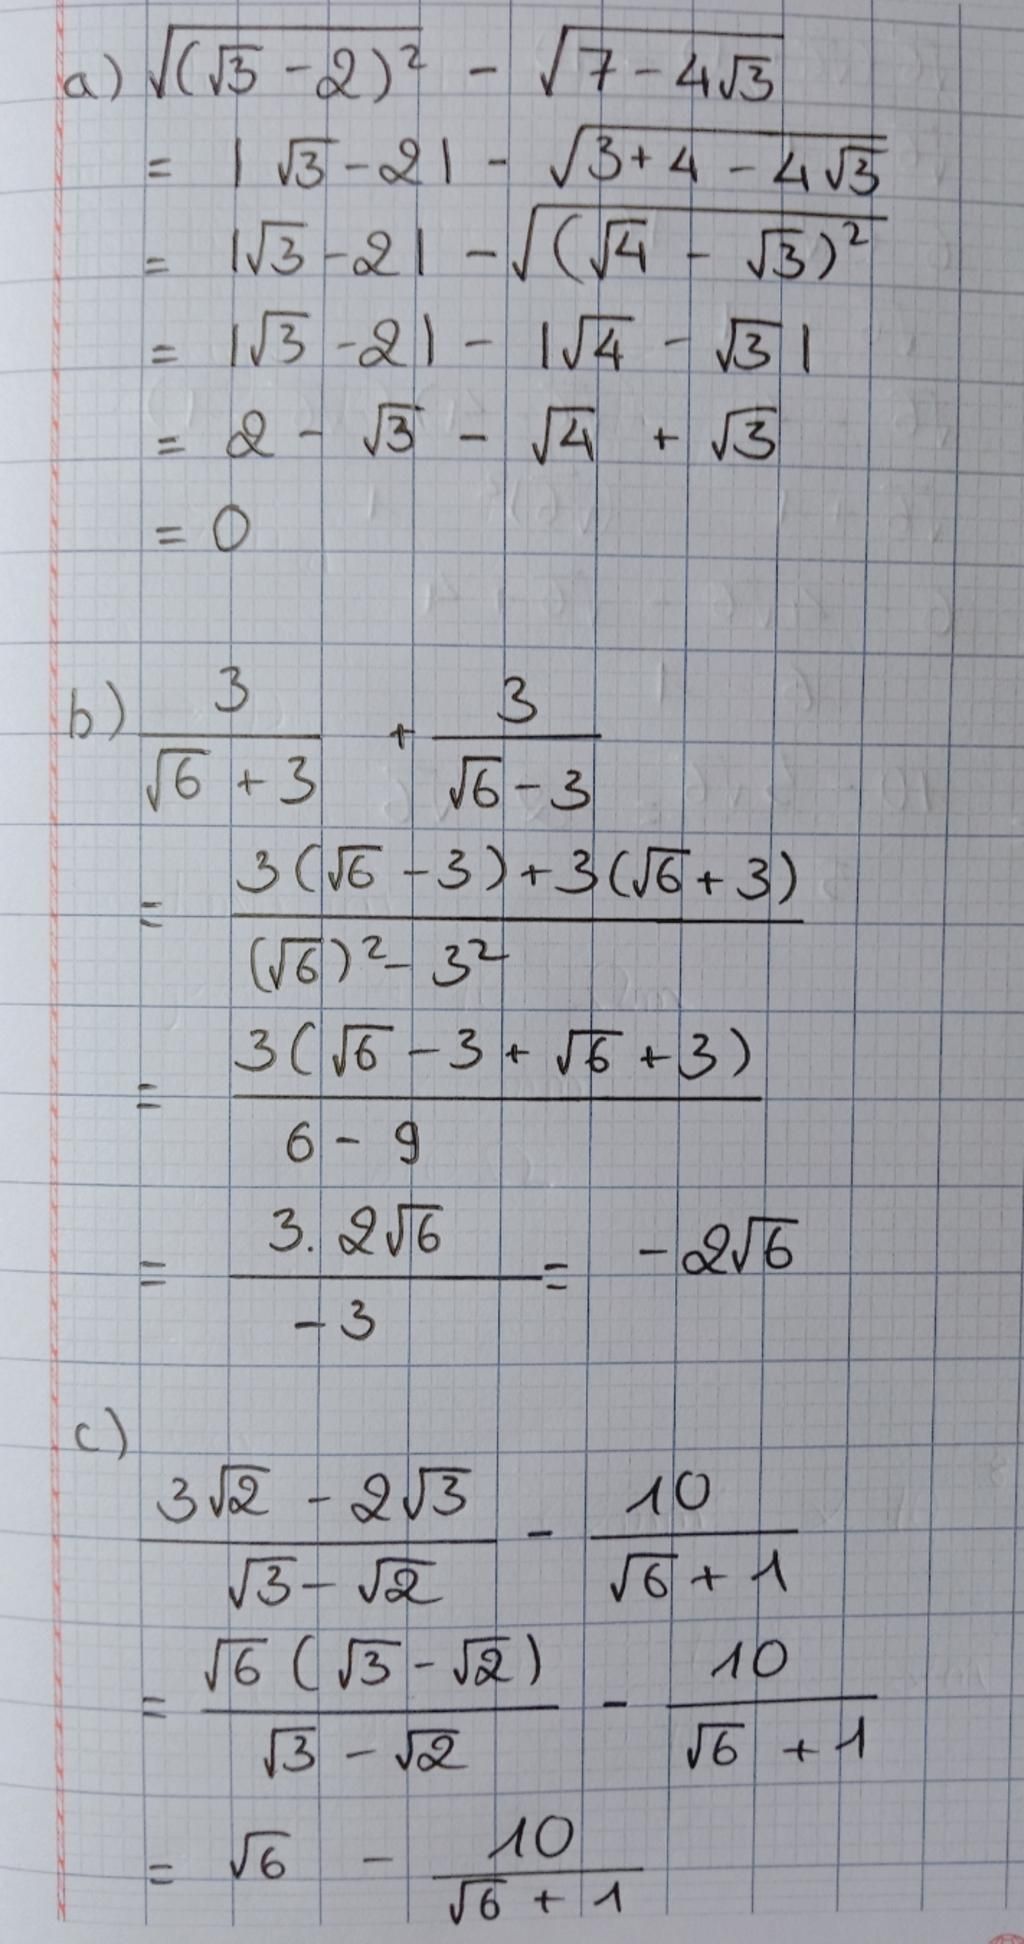 a) √((√3 - 2)²) - √(7 - 4√3)
= |√3 - 2| - √(3 + 4 - 4√3)
= |√3 - 2| - √((√4 - √3)²)
= |√3 - 2| - |√4 - √3|
= 2 - √3 - √4 + √3
= 0
b) 3/(√6 + 3) + 3/(√6 - 3)
= (3(√6 - 3) + 3(√6 + 3))/((√6)² - 3²)
= (3(√6 - 3 + √6 + 3))/(6 - 9)
= (3. 2√6)/(-3) = -2√6
c)
(3√2 - 2√3)/(√3 - √2) - 10/(√6 + 1)
= (√6 (√3 - √2))/(√3 - √2) - 10/(√6 + 1)
= √6 - 10/(√6 + 1)